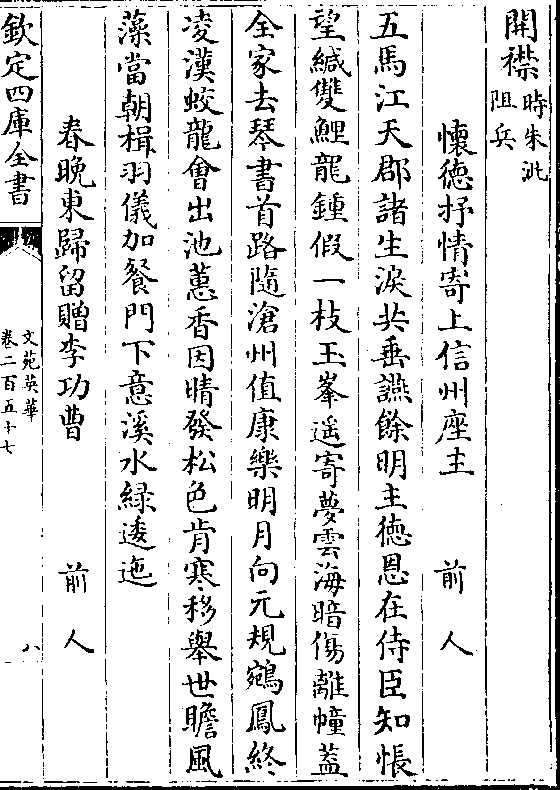 開襟時朱泚阻兵
懷德抒情寄上信州座主　前人
五馬江天郡諸生淚共垂讌餘明主德恩在侍臣知悵
望緘雙鯉龍鍾假一枝玉峯遥寄夢雲海暗傷離幢葢
全家去琴書首路隨滄州值康樂明月向元規鵷鳳終
凌漢蛟龍㑹出池蕙香因晴發松色肯寒移舉世瞻風
藻當朝楫羽儀加餐門下意溪水緑逶迤
春晚東歸留贈李功曹　前人
欽定四庫全書
文苑英華
卷二百五十七
八